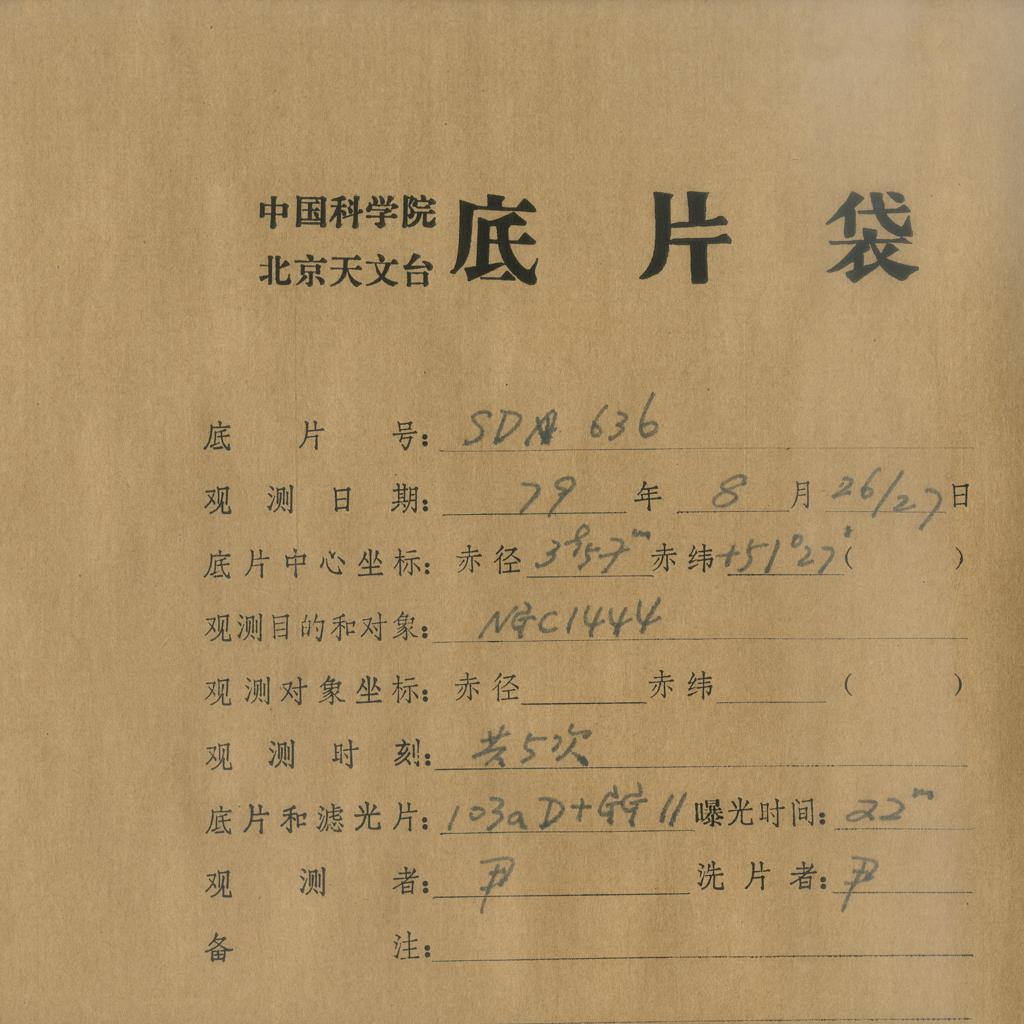 中国科学院
北京天文台
底片袋
底片号: SD 636
观测日期: 79 年 8 月 26/27 日
底片中心坐标: 赤径 3h57m 赤纬 +51°27′ ( )
观测目的和对象: NGC1444
观测对象坐标: 赤径 赤纬 ( )
观测时刻: 共5次
底片和滤光片: 103aD+GG 11 曝光时间: 22m
观测者: 尹 洗片者: 尹
备注: